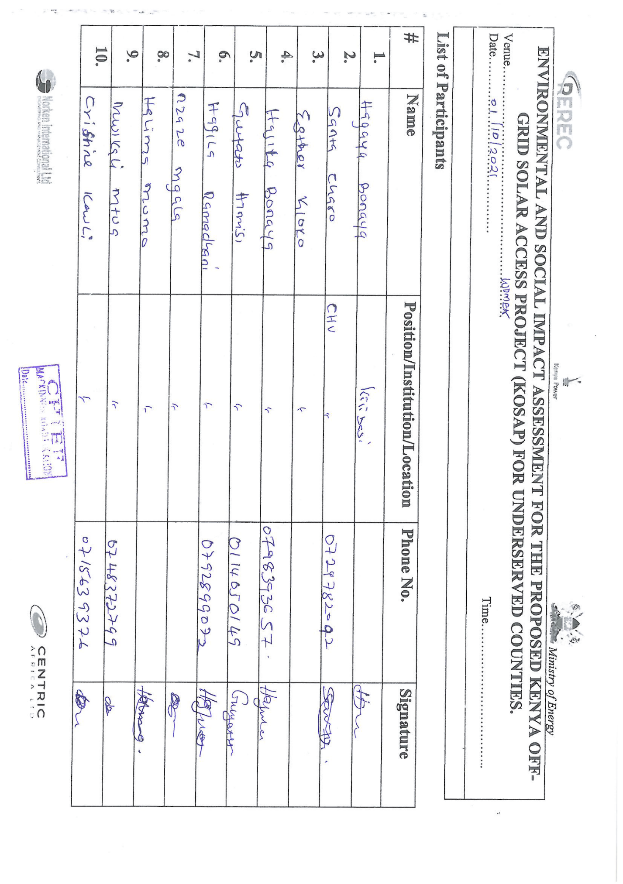 REREC
Kenya Power
Ministry of Energy
ENVIRONMENTAL AND SOCIAL IMPACT ASSESSMENT FOR THE PROPOSED KENYA OFF-
GRID SOLAR ACCESS PROJECT (KOSAP) FOR UNDERSERVED COUNTIES.
Venue.......... women
Date.....01/10/2021.......... Time..........
List of Participants
# Name Position/Institution/Location Phone No. Signature
1. Hagaya Bonaya
2. Santa Charo CHV 0729782092
3. Esther Kioko "
4. Hajita Bonaya " 0798393657.
5. Guyato Hamisi " 0114050149
6. Hagila Ramadhani " 0792899092
7. Nzaze mgala "
8. Halima mumo "
9. Mwikali mtua " 0748372799
10. Cristine Kawli " 0715639376
Norken International Ltd
CHIEF
Date
CENTRIC
AFRICA LTD